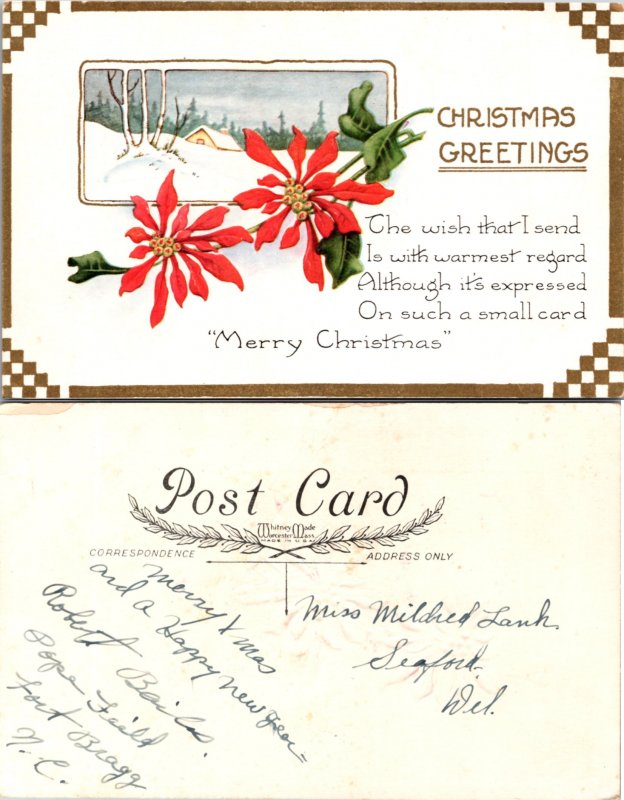 CHRISTMAS
GREETINGS
The wish that I send
Is with warmest regard
Although it's expressed
On such a small card
"Merry Christmas"
Post Card
Whitney Made
Worcester Mass
MADE IN U.S.A.
CORRESPONDENCE
ADDRESS ONLY
Merry Xmas
and a Happy New Year
Robert
Pope Feild
Fort Bragg
N.C.
Miss Mildred Lank
Seaford.
Del.